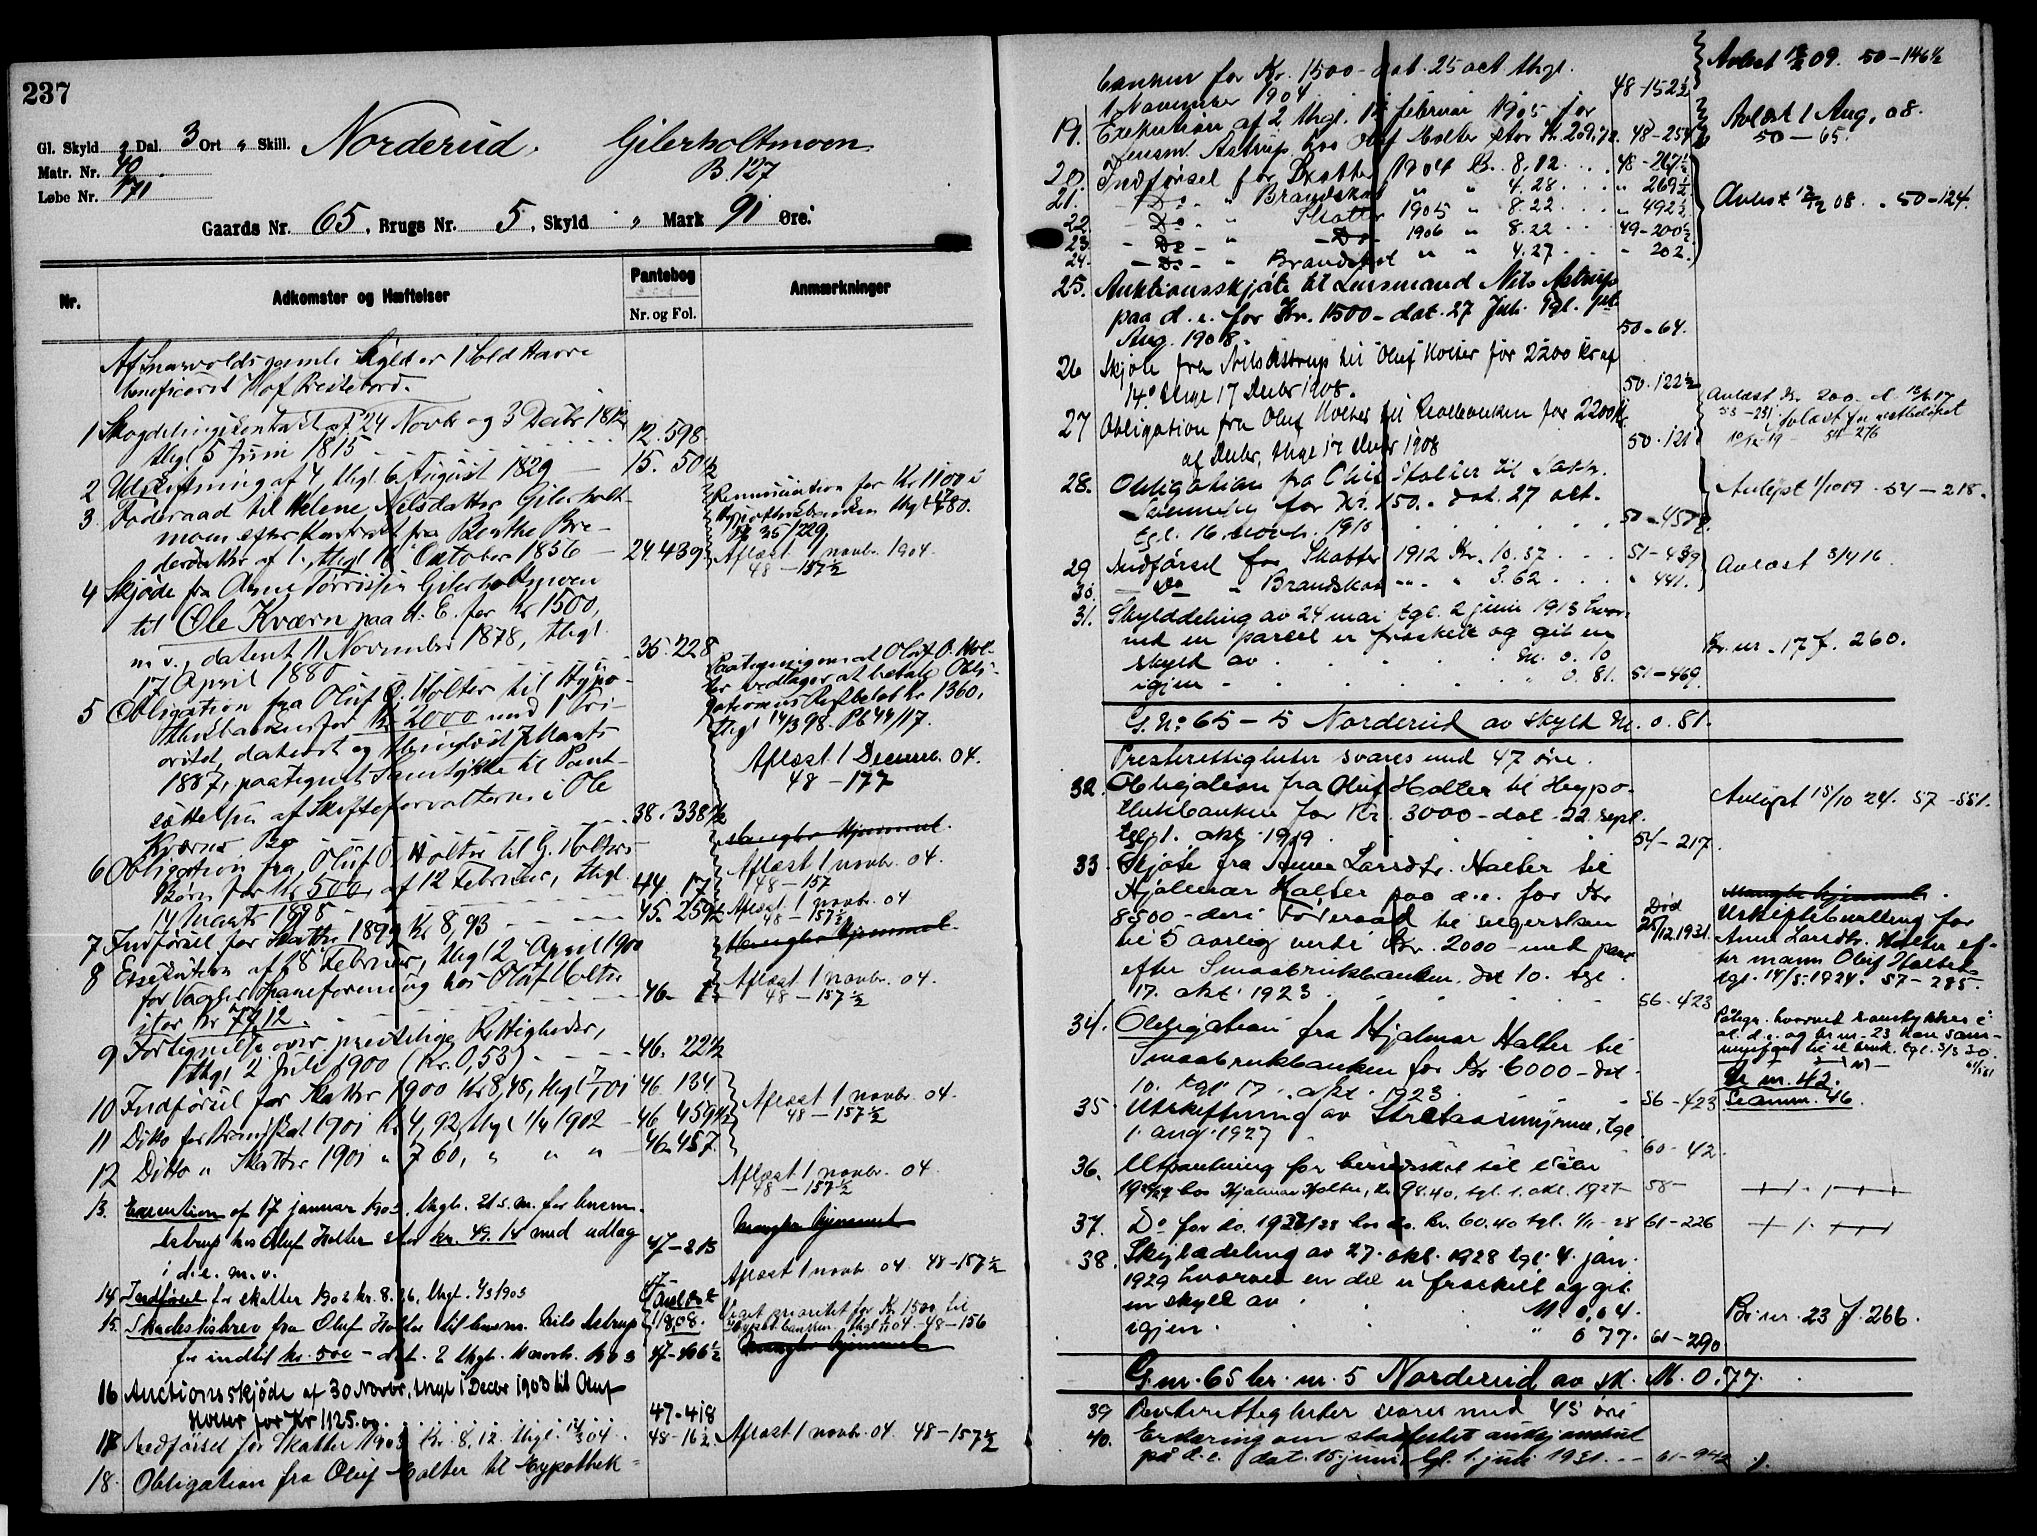 237
Gl. Skyld " Dal. 3 Ort " Skill. Norderud, Gilerholtmoen
Matr. Nr. 40 B. 127
Løbe Nr. 171
Gaards Nr. 65, Brugs Nr. 5, Skyld " Mark 91 Øre.
Nr. Adkomster og Hæftelser Pantebog Nr. og Fol. Anmærkninger
gamle Skyld er 1 Hold Havre
beneficeret Hof Prestebord.
1 Skogdelingskontrakt af 24 Novbr og 3 Decbr 1812
thgl 5 Juni 1815 12. 598
2 Udskiftning af 4, thgl. 6 August 1829 15. 50 1/2
3 Føderaad til Helene Nelsdatter Gilerholt-
moen efter Kontrakt fra Berthe Pe-
dersdatter af 1. thgl 16 October 1856 24. 439
Renunciation for Kr 1100 i
Hypothekbanken thgl 80.
35/229
Aflæst 1 novbr. 1904.
48 – 157 1/2
4 Skjøde fra Arne Tørrisen Gilerholtmoen
til Ole Kværn paa d. E. for Kr 1500,
m. v., dateret 11 November 1878, thgl.
17 April 1880 35. 228
5 Obligation fra Oluf O. Holter til Hypo-
thekbanken for Kr. 2000 med 1 Pri-
oritet, dateret og thinglæst 7 Marts
1887, paategnet Samtykke til Pant-
sættelsen af Skifteforvalteren i Ole
Kværns Bo 38. 338 1/2
Paategning om at Oluf O. Hol-
ter vedtager at betale Obli-
gationens Restbeløb Kr. 1360,
thgl 14/3 98. Pb 44/17.
Aflæst 1 Decemb. 04.
48 – 177
6 Obligation fra Oluf O. Holter til G. Holters
Børn for Kr 500, af 12 Februar, thgl.
14 Marts 1898 44. 17
Mangler Hjemmel.
Aflæst 1 novbr. 04.
48 – 157
7 Indførsel for Skatter 1899 Kr 8,93 45. 259 1/2
Aflæst 1 novbr. 04
48 – 157 1/2
8 Execution af 18 Februar, thgl 2 April 1900
for Vaaler Spareforening hos Oluf Holter
stor Kr 74,12 46-
Mangler Hjemmel.
Aflæst 1 novbr. 04.
48 – 157 1/2
9 Fortegnelse over prestelige Rettigheder,
thgl 2 Juli 1900 (Kr. 0,53) 46. 22 1/2
10 Indførsel for Skatter 1900 Kr 8,48, thgl 01 46 134
11 Ditto for Brandskat 1901 Kr 4,92, thgl 1/4 1902 46 459 1/2
Aflæst 1 novbr. 04.
48 – 157 1/2
12 Ditto " Skatter 1901 " 7 60, " " " 46 457.
Aflæst 1 novbr. 04.
48 – 157 1/2
13. Execution af 17 januar 1903, thgl. 21 s. m. for lensm.
Astrup hos Oluf Holter stor kr. 49.14 med udlæg
i d. e. m. v. 47 – 213
Mangler hjemmel
Aflæst 1 novbr. 04 48 – 157 1/2
14 Indførsel for skatter 1902 kr. 8.26, thgl. 1903
15. Skadesløsbrev fra Oluf Holter til lensm. Nils Astrup
for indtil kr. 500 – dat. 2 thgl. Novb. 1903 47 – 406 1/2
prioritet for Kr. 1500 til
Hypoth. banken, thgl 04. – 48 – 156
Mangler hjemmel
16 Auctionsskjøde af 30 Novbr, thgl 1 Decbr 1903 til Oluf
Holter for Kr 1125.00 47 – 418
17 Indførsel for Skatter 1903 Kr. 8.12. thgl. 04 48 – 16 1/2 Aflæst 1 novbr. 04 48 – 157 1/2
18. Obligation fra Oluf Holter til Hypothek-
banken for Kr. 1500 – dat. 25 oct. thgl.
1 November 1904 48 – 152 1/2 Avlæst 09. 50 – 146 1/2
19. Exekution af 2 thgl. 12 februar 1905 for
Lensm. Astrup hos Oluf Holter stor Kr. 209.72. 48 – 254 Avlæst 1 Aug. 08.
50 – 65.
20. Indførsel for Skatter 1904 Kr. 8.12 48 – 267 1/2
21. – Do – " Brandskat " " 4.28 " 269 1/2
22. – Do – " Skatter 1905 " 8.22 " 492 1/2 Avlæst 08. 50 – 124.
23. – Do – " – Do – 1906 " 8.22 49 – 200 1/2
24. – Do – " Brandskat " " 4.27 " 202.
25. Auktionsskjøte til Lensmand Nils Astrup
paa d. e. for Kr. 1500 – dat. 27 Juli tgl. 1st
Aug. 1908. 50 – 64.
26 Skjøte fra Nils Astrup til Oluf Holter for 2200 kr af
14. thgl 17 Decbr 1908. 50. 122 1/2
27 Obligation fra Oluf Holter til Reallbanken for 2200 K
af Decbr, thgl 17 Decbr 1908 50. 121
Avlæst Kr. 200.
avlæst for restbeløpet
54 – 276
28. Obligation fra Oluf Holter til
for Kr. 150. – dat. 27 oct.
tgl. 16. novb. 1910 50 – 450 Avlyst 1/10 19. 54 – 218.
29. Indførsel for Skatter 1912 Kr. 10.37 51 – 439
30. – Do – " Brandskat " " 3.62 " 441. Avlæst 3/4 16.
31. Skylddeling av 24 mai tgl. 2 juni 1913 hvor-
ved en parcel er fraskilt og git en
skyld av M. 0.10
igjen " 0.81. 51 – 469. Br. nr. 17 f. 260.
G. No 65 – 5 Norderud av skyld M. 0.81.
Presterettigheter svares med 47 øre.
32. Obligation fra Oluf Holter til Hypo-
thekbanken for Kr. 3000 – dat. 22 sept.
tgl. 1. okt. 1919 54 – 217. Avlyst 18/10 24. 57 – 551.
33. Skjøte fra Anne Larsdtr. Holter til
Hjalmar Holter paa d. e. for Kr
8500 – deri Føderaad til selgersken
til 5 aarlig verdi Kr. 2000 – med pant
efter Smaabrukbanken. dat 10. tgl.
17. okt. 1923 56 – 423
Død
25/12.1931.
Mangler hjemmel.
Uskiftebevilling for
Anne Larsdtr. Holter ef-
ter mann Oluf Holter
tgl. 14/5. 1924. 57 – 285.
34. Obligation fra Hjalmar Holter til
Smaabrukbanken for Kr. 6000 – dat
10. tgl. 17. okt. 1923 56 – 423
Påtegn. hvorved samtykkes i
at d. e. og br. nr. 23 kan sam-
menføies til et bruk. tgl. 3/3 30.
Br. nr. 42.
Sammen. 46.
35. Utskiftning av tgl
1. aug. 1927 60 – 42.
36. Utpantning for herredsskat til Våler
1926/27 hos Hjalmar Holter, Kr. 98.40, tgl. 1. okt. 1927 58 –
37. Do for do. 1927/28 hos do. Kr. 60.40 tgl. 1/11 – 28 61 – 226
38. Skylddeling av 27. okt. 1928 tgl. 4. jan.
1929 hvorved en del er fraskilt og git
en skyld av M. 0,04.
igjen " 0 77. 61 – 290 Br. nr. 23 f. 266.
G. nr. 65 br. nr. 5 Norderud av sk. M. 0.77.
39 Presterettigheter svares med 45 øre
40. Erklæring om stadfestet autkjønnelse
på d. e. dat. 15 juni, tgl. 1. juli 1931. 61 – 94 1/2